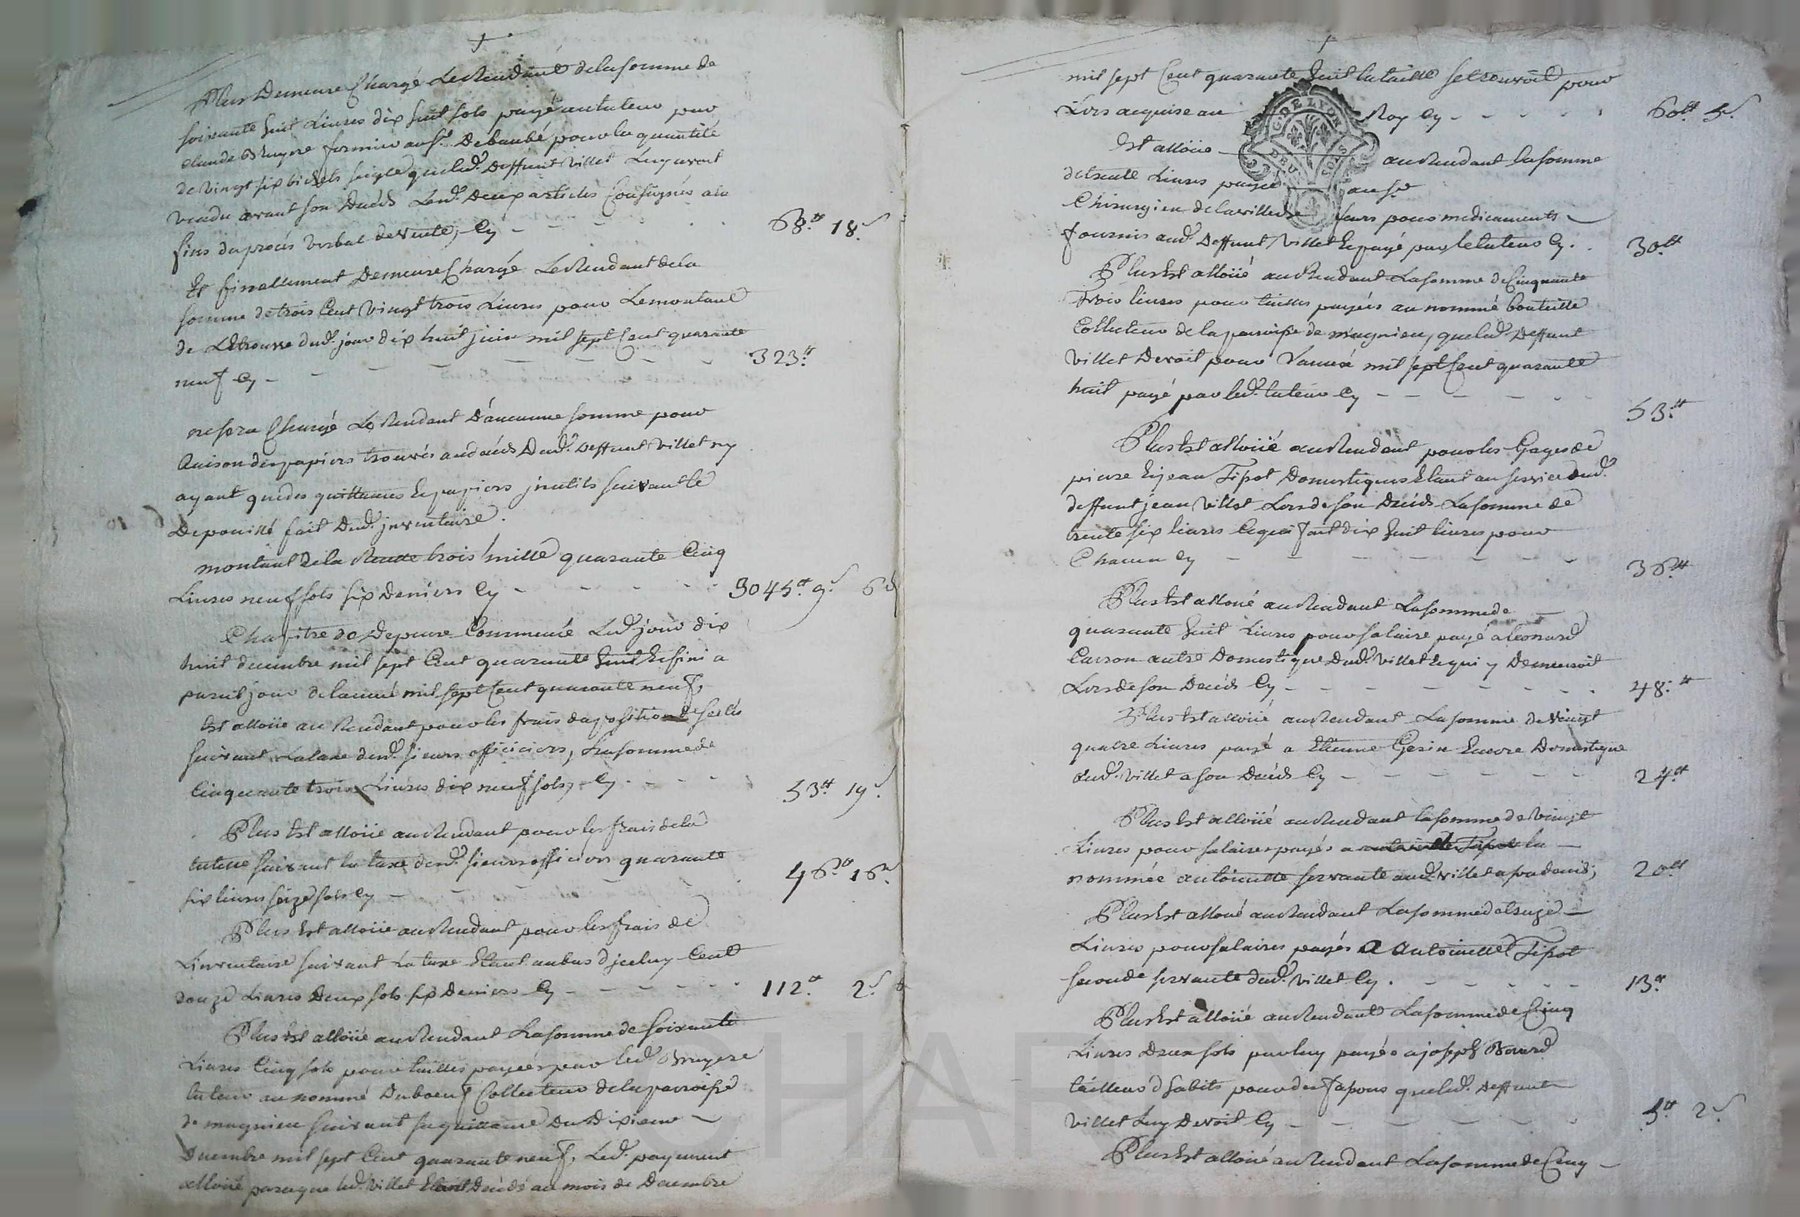 Plus Demeure Chargé Le Rendant de la somme de
soixante huit Livres dix huit sols payé au tuteur par
claude Bruyere fermier au sr. Debaubé pour la quantité
de vingt six bichets seigle que led. Deffunt villet Luy avoit
vendu avant son Decés Lesd. Deux articles Consignés a la
fin du procés verbal de vente, Cy - - - 68tt 18s
Et finallement Demeure Chargé Le Rendant de la
somme de trois Cent vingt trois Livres pour Le montant
de dud. jour dix huit juin mil sept Cent quarante
neuf Cy - - - 323tt
ne sera Chargé Le Rendant D'aucune somme pour
Raison des papiers trouvés au decés Dud. Deffunt villet ny
ayant que des quittances Et papiers jnutils suivant le
Depouillé fait Dud. jnventaire.
montant De la Recette trois mille quarante Cinq
Livres neuf sols six Deniers Cy - - - 3045tt 9s 6d
Chapitre de Depense Commencée Led. jour dix
huit decembre mil sept Cent quarante huit Et fini a
pareil jour de l'année mil sept Cent quarante neuf,
Est alloüé au Rendant pour les frais d'aposition de scellés
suivant La taxe desd. sieurs officiers, La somme de
Cinquante trois Livres dix neuf sols, Cy - - - 53tt 19s
Plus Est alloüé au Rendant pour les frais de la
tutelle suivant la taxe desd. sieurs officiers quarante
six livres seize sols Cy - - - 46tt 16s
Plus Est alloüé au Rendant pour les frais de
L'inventaire suivant La taxe Etant au bas d'jceluy Cent
douze Livres Deux sols six Deniers Cy - - - 112tt 2s 6
Plus Est alloüé au Rendant La somme de soixante
Livres Cinq sols pour tailles payées par led. Bruyere
tuteur au nommé Duboeuf Collecteur de la parroisse
de magnieu suivant sa quittance Du Dixieme
Decembre mil sept Cent quarante neuf, Led. payement
alloüé parceque led. villet Etant Decedé au mois de Decembre
mil sept Cent quarante huit la taille se trouvoit pour
Lors acquise au Roy Cy - - - 60tt 5s
G. DE LYON
DEUX SOLS
Est alloüé au Rendant la somme
de trente Livres payée au sr
Chirurgien de la ville de pour medicaments
fournis aud. Deffunt villet Et payé par le tuteur Cy. - 30tt
Plus Est alloüé au Rendant La somme de Cinquante
trois livres pour tailles payées au nommé bouteille
Collecteur de la parroisse de magnieu, que led. Deffunt
villet Devoit pour L'année mil sept Cent quarante
huit payé par led. tuteur Cy - - - 53tt
Plus Est alloüé au Rendant pour les Gages de
pierre Et jean Tissot Domestiques Etant au service dud.
deffunt jean villet Lors de son Decés La somme de
trente six livres Ce qui fait dix huit livres pour
Chacun Cy - - - 36tt
Plus Est alloüé au Rendant La somme de
quarante huit Livres pour salaire payé a Leonard
Carron autre Domestique Dud. villet Et qui y Demeuroit
Lors de son Decés Cy - - - 48tt
Plus Est alloüé au Rendant La somme de vingt
quatre Livres payé a Etienne Gerin Encore Domestique
dud. villet a son Decés Cy - - - 24tt
Plus Est alloüé au Rendant la somme de vingt
Livres pour salaires payés a la
nommée antoinette servante aud. villet a son decés; 20tt
Plus Est alloüé au Rendant La somme de treize
Livres pour salaires payés a Antoinette Tissot
seconde servante dud. villet Cy. - - - 13tt
Plus Est alloüé au Rendant La somme de Cinq
Livres Deux sols par luy payée a joseph Bovard
tailleur d'habits pour des fassons que led. Deffunt
villet Luy Devoit Cy - - - 5tt 2s
Plus Est alloüé au Rendant La somme de Cinq